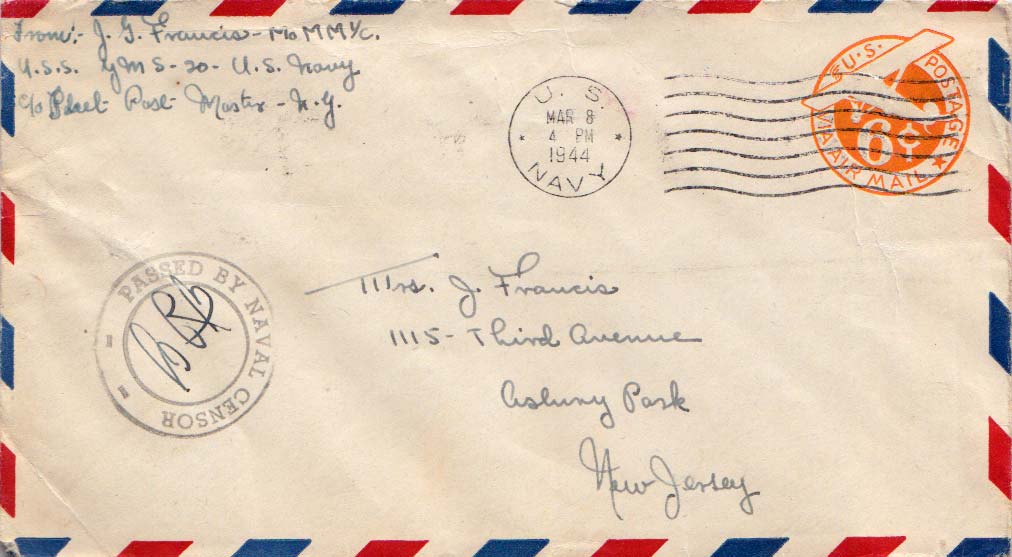 From:- J. G. Francis - MoMM 1/c.
U.S.S. YMS-20- U.S. Navy
c/o Fleet Post Master - N.Y.
U.S.
MAR 8
4 PM
1944
NAVY
U.S. POSTAGE
6¢
VIA AIR MAIL
PASSED BY NAVAL CENSOR
Mrs. J. Francis
1115- Third Avenue
Asbury Park
New Jersey